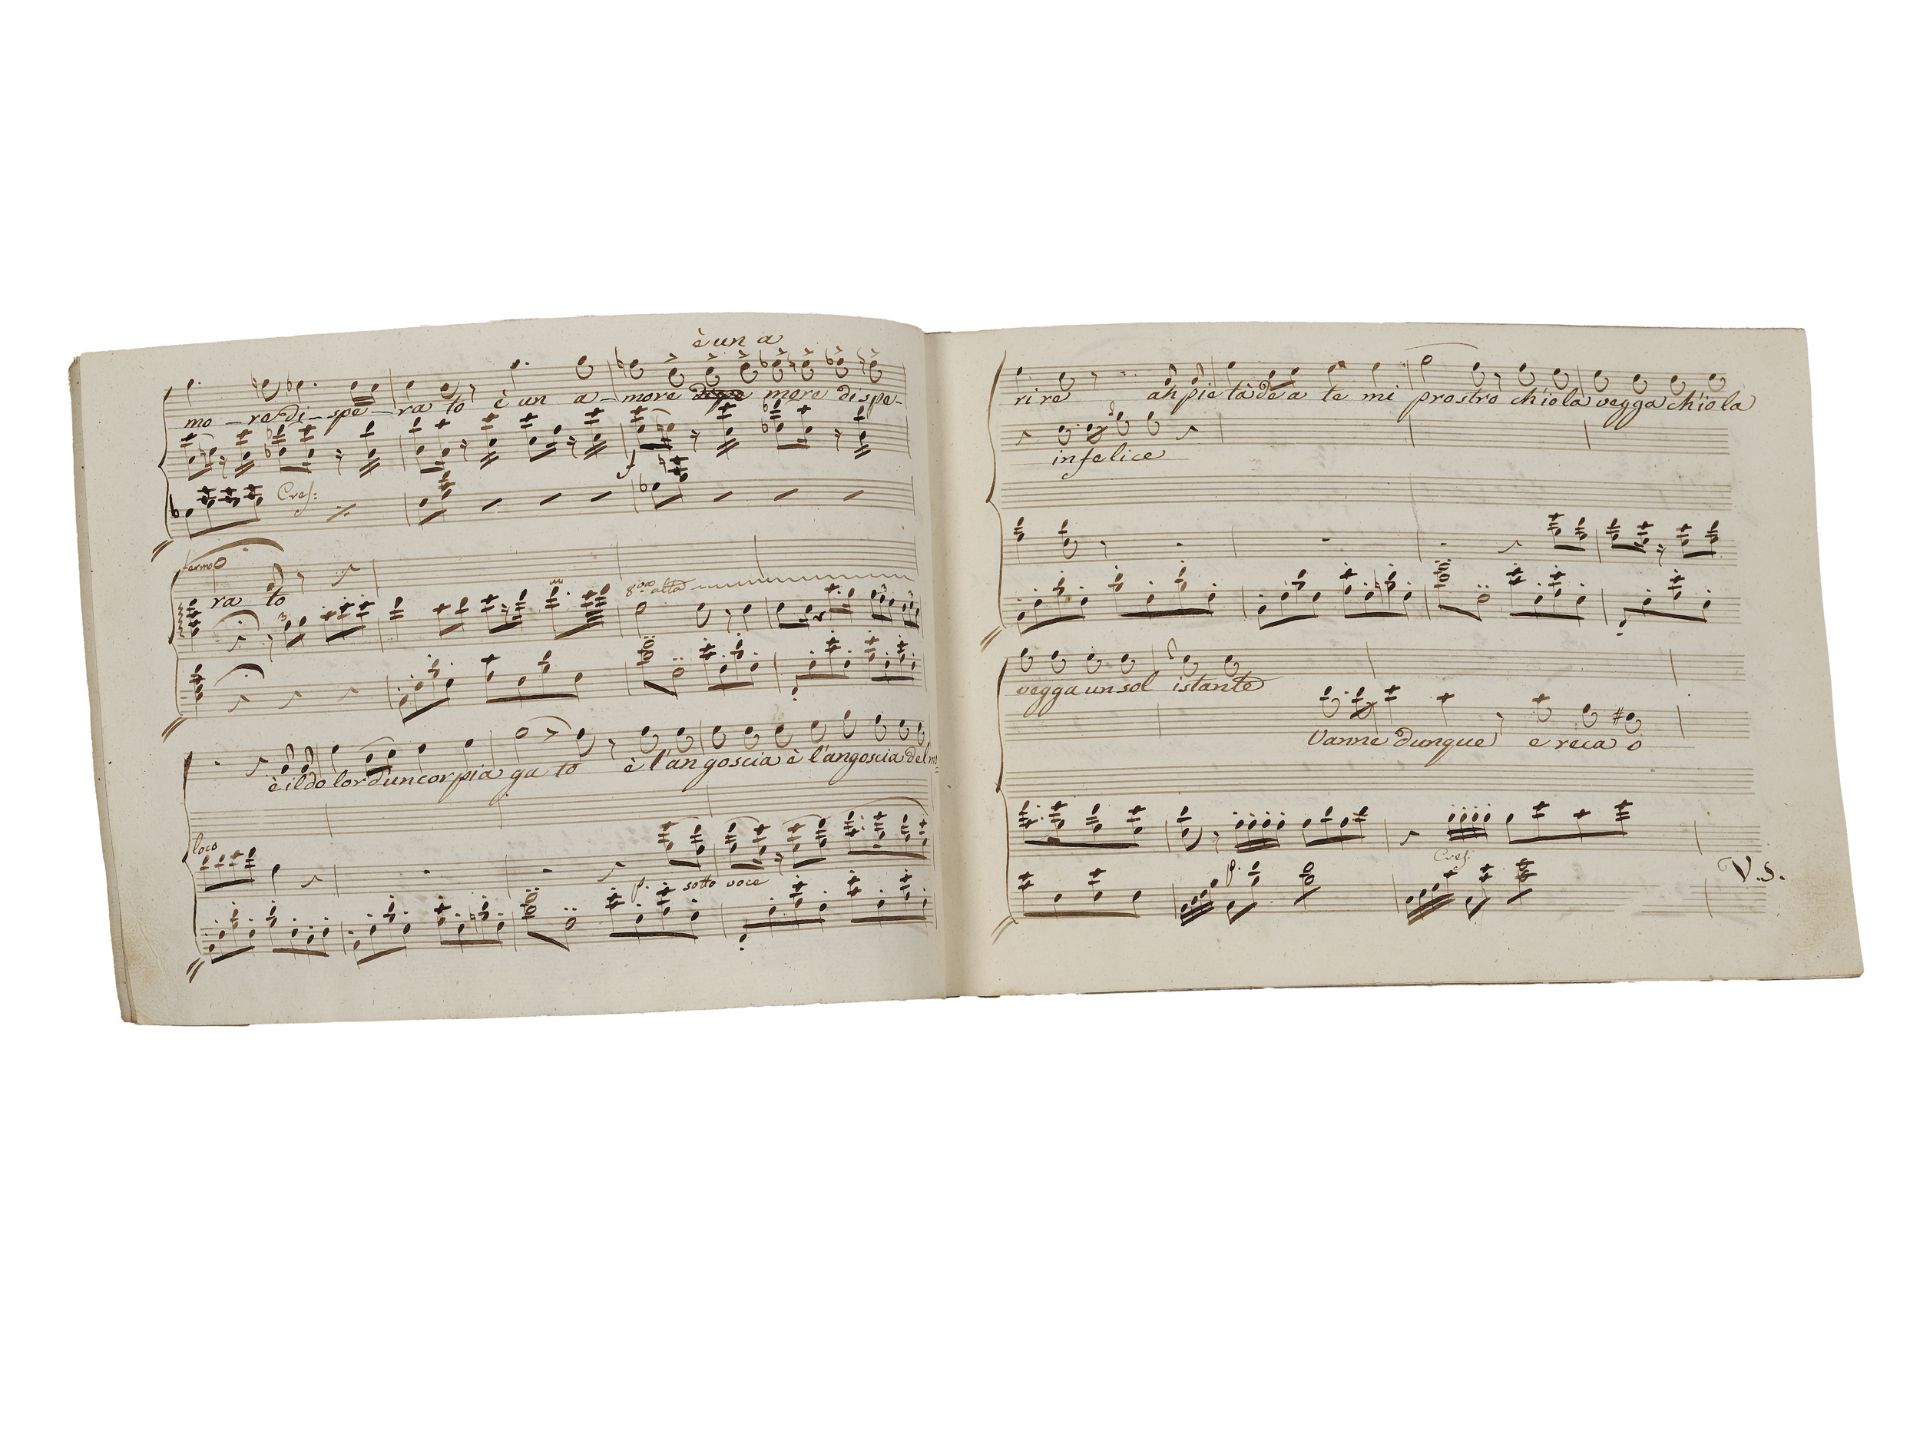 è un a
mo - re di - spe - ra to è un a - more more dispe -
Cres:
f
ra to
8va alta
è il do lor d'un cor pia ga to è l'an goscia è l'angoscia del mo
loco
p. sotto voce
ri re ah pie tà de a te mi prostro ch'io la vegga ch'io la
infelice
vegga un sol istante
Vanne dunque e reca o
p. Cres.
V. S.